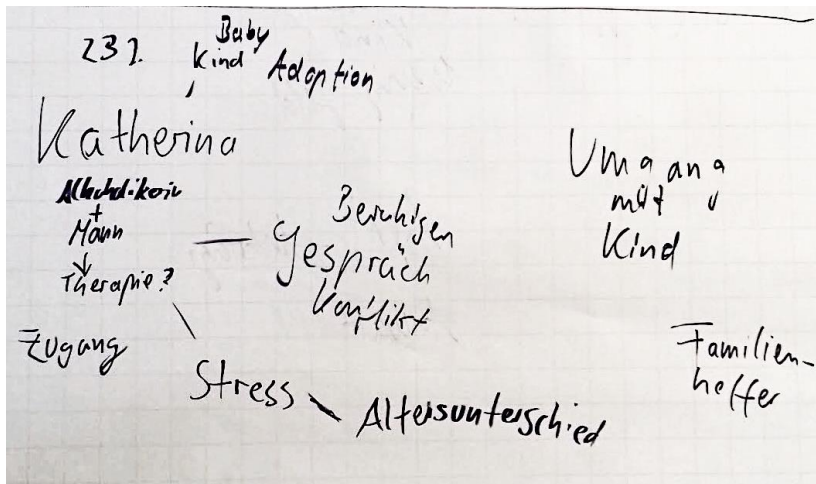 231.
Baby
Kind Adoption
Katherina
Alkoholikerin
+
Mann
↓
Therapie?
Zugang
Beruhigen
Gespräch
Konflikt
Stress
Altersunterschied
Umgang
mit
Kind
Familien-
helfer